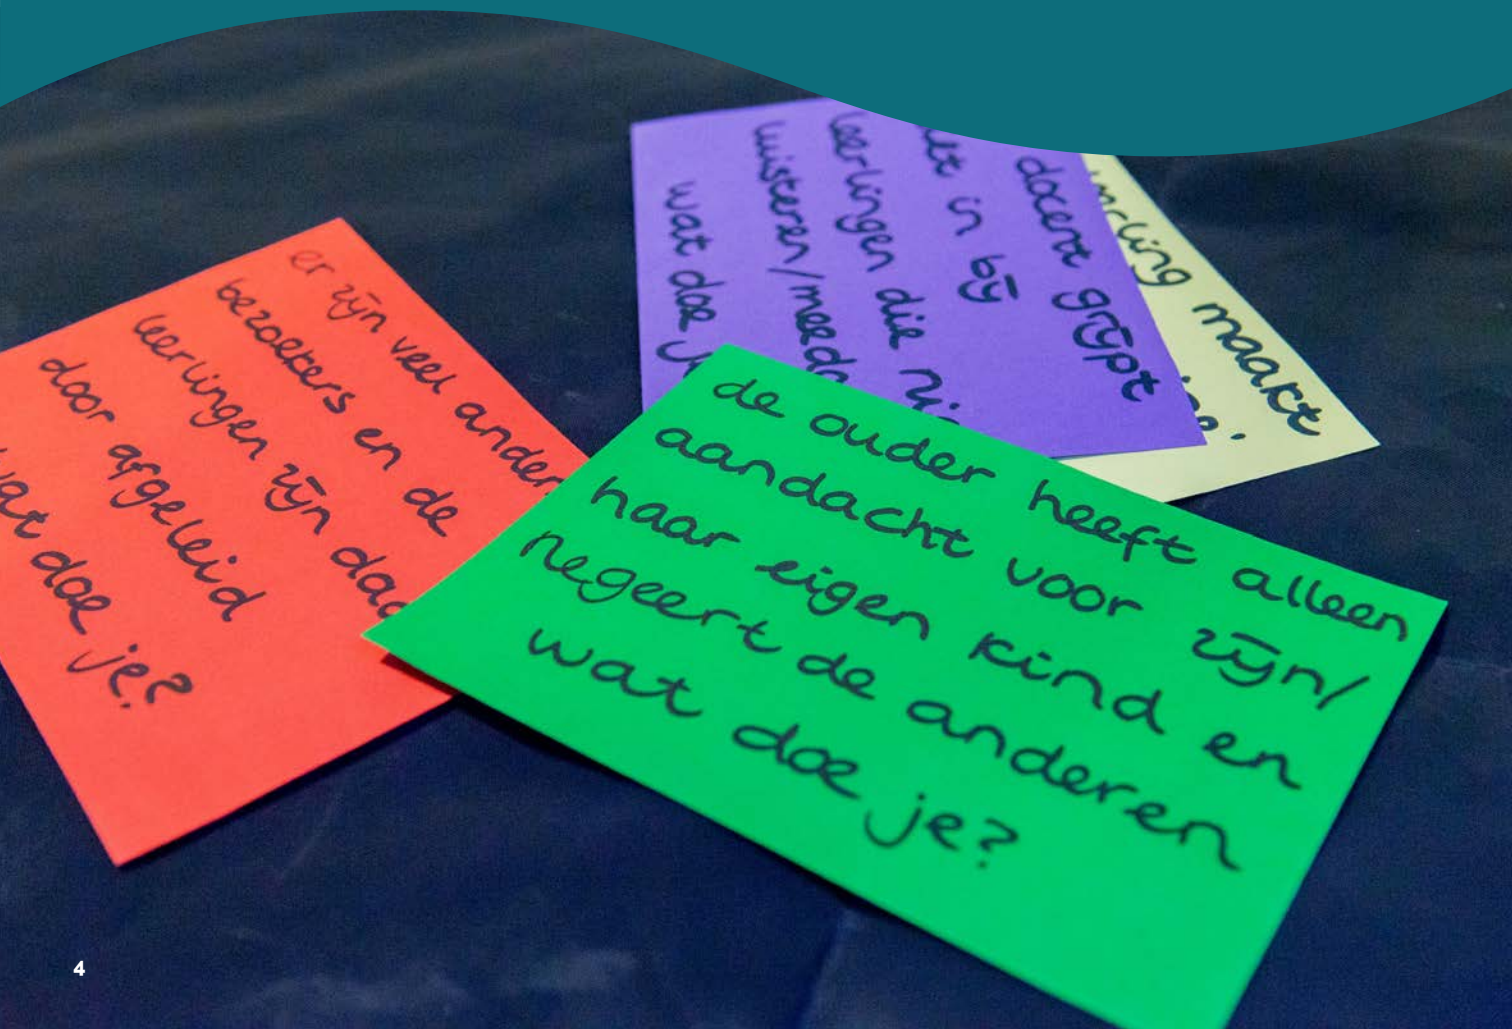 er zijn veel
bezoekers en de
leerlingen zijn
door afgeleid
doe je?
docent grijpt
in bij
leerlingen die
wat doe
maakt
de ouder heeft alleen
aandacht voor zijn/
haar eigen kind en
negeert de anderen
wat doe je?
4